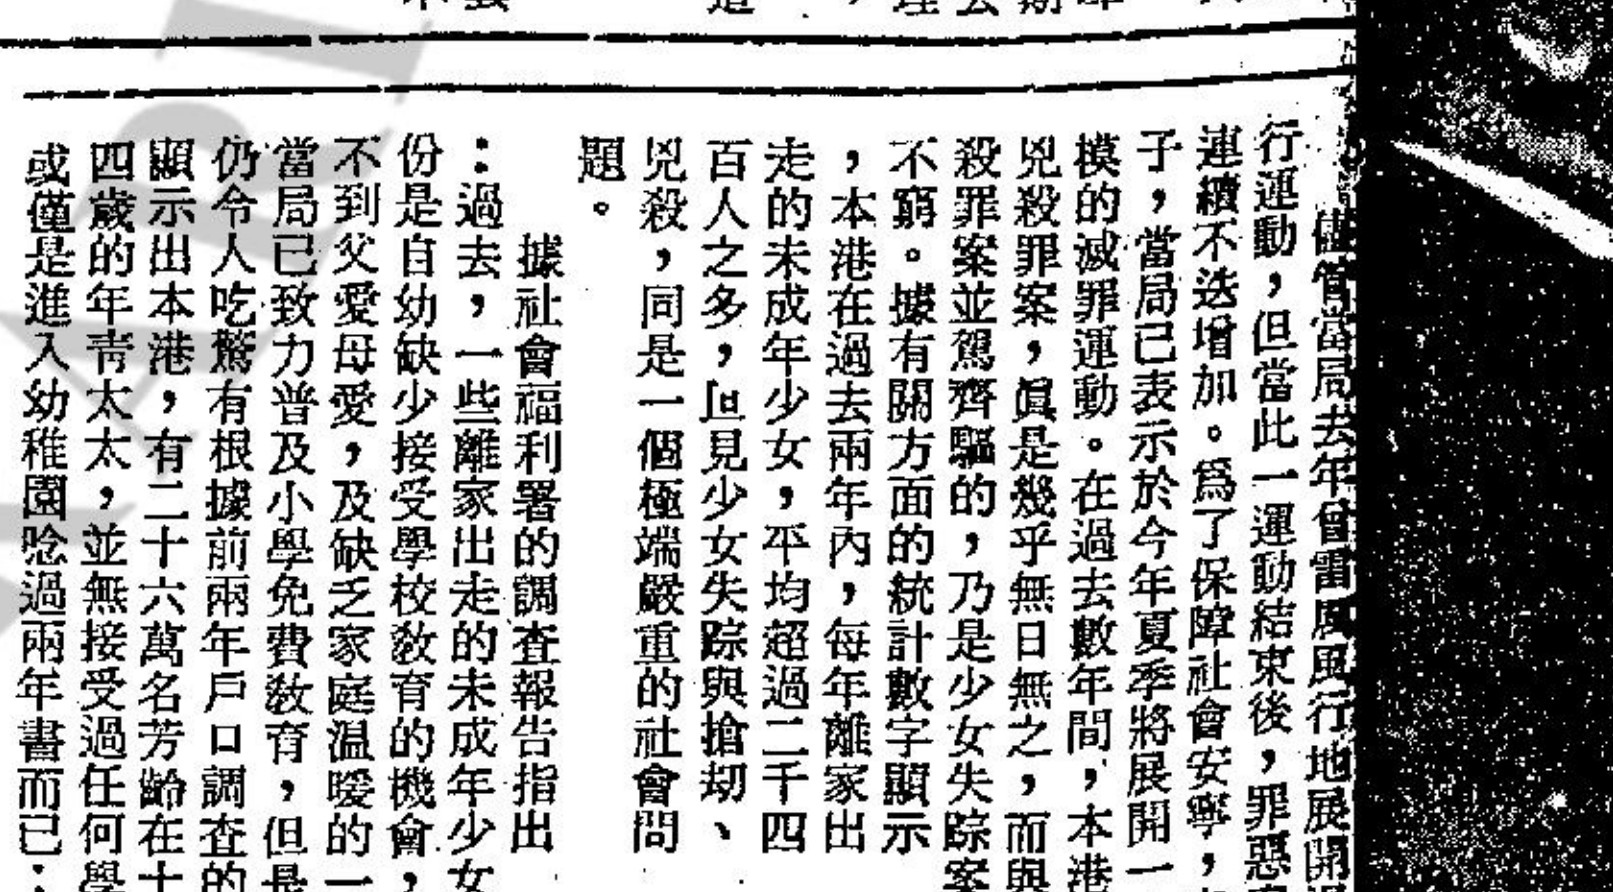 儘管當局去年曾雷厲風行地展開
行運動，但當此一運動結束後，罪惡
連續不迭增加。爲了保障社會安寧，
子，當局已表示於今年夏季將展開一
模的滅罪運動。在過去數年間，本港
兇殺罪案，眞是幾乎無日無之，而與
殺罪案並駕齊驅的，乃是少女失踪案
不窮。據有關方面的統計數字顯示
，本港在過去兩年內，每年離家出
走的未成年少女，平均超過二千四
百人之多，但見少女失踪與搶劫、
兇殺，同是一個極端嚴重的社會問
題。
據社會福利署的調查報告指出
：過去，一些離家出走的未成年少女
份是自幼缺少接受學校教育的機會，
不到父愛母愛，及缺乏家庭温暖的一
當局已致力普及小學免費教育，但長
仍令人吃驚有根據前兩年戶口調查的
顯示出本港，有二十六萬名芳齡在十
四歲的年靑太太，並無接受過任何學
或僅是進入幼稚園唸過兩年書而已；